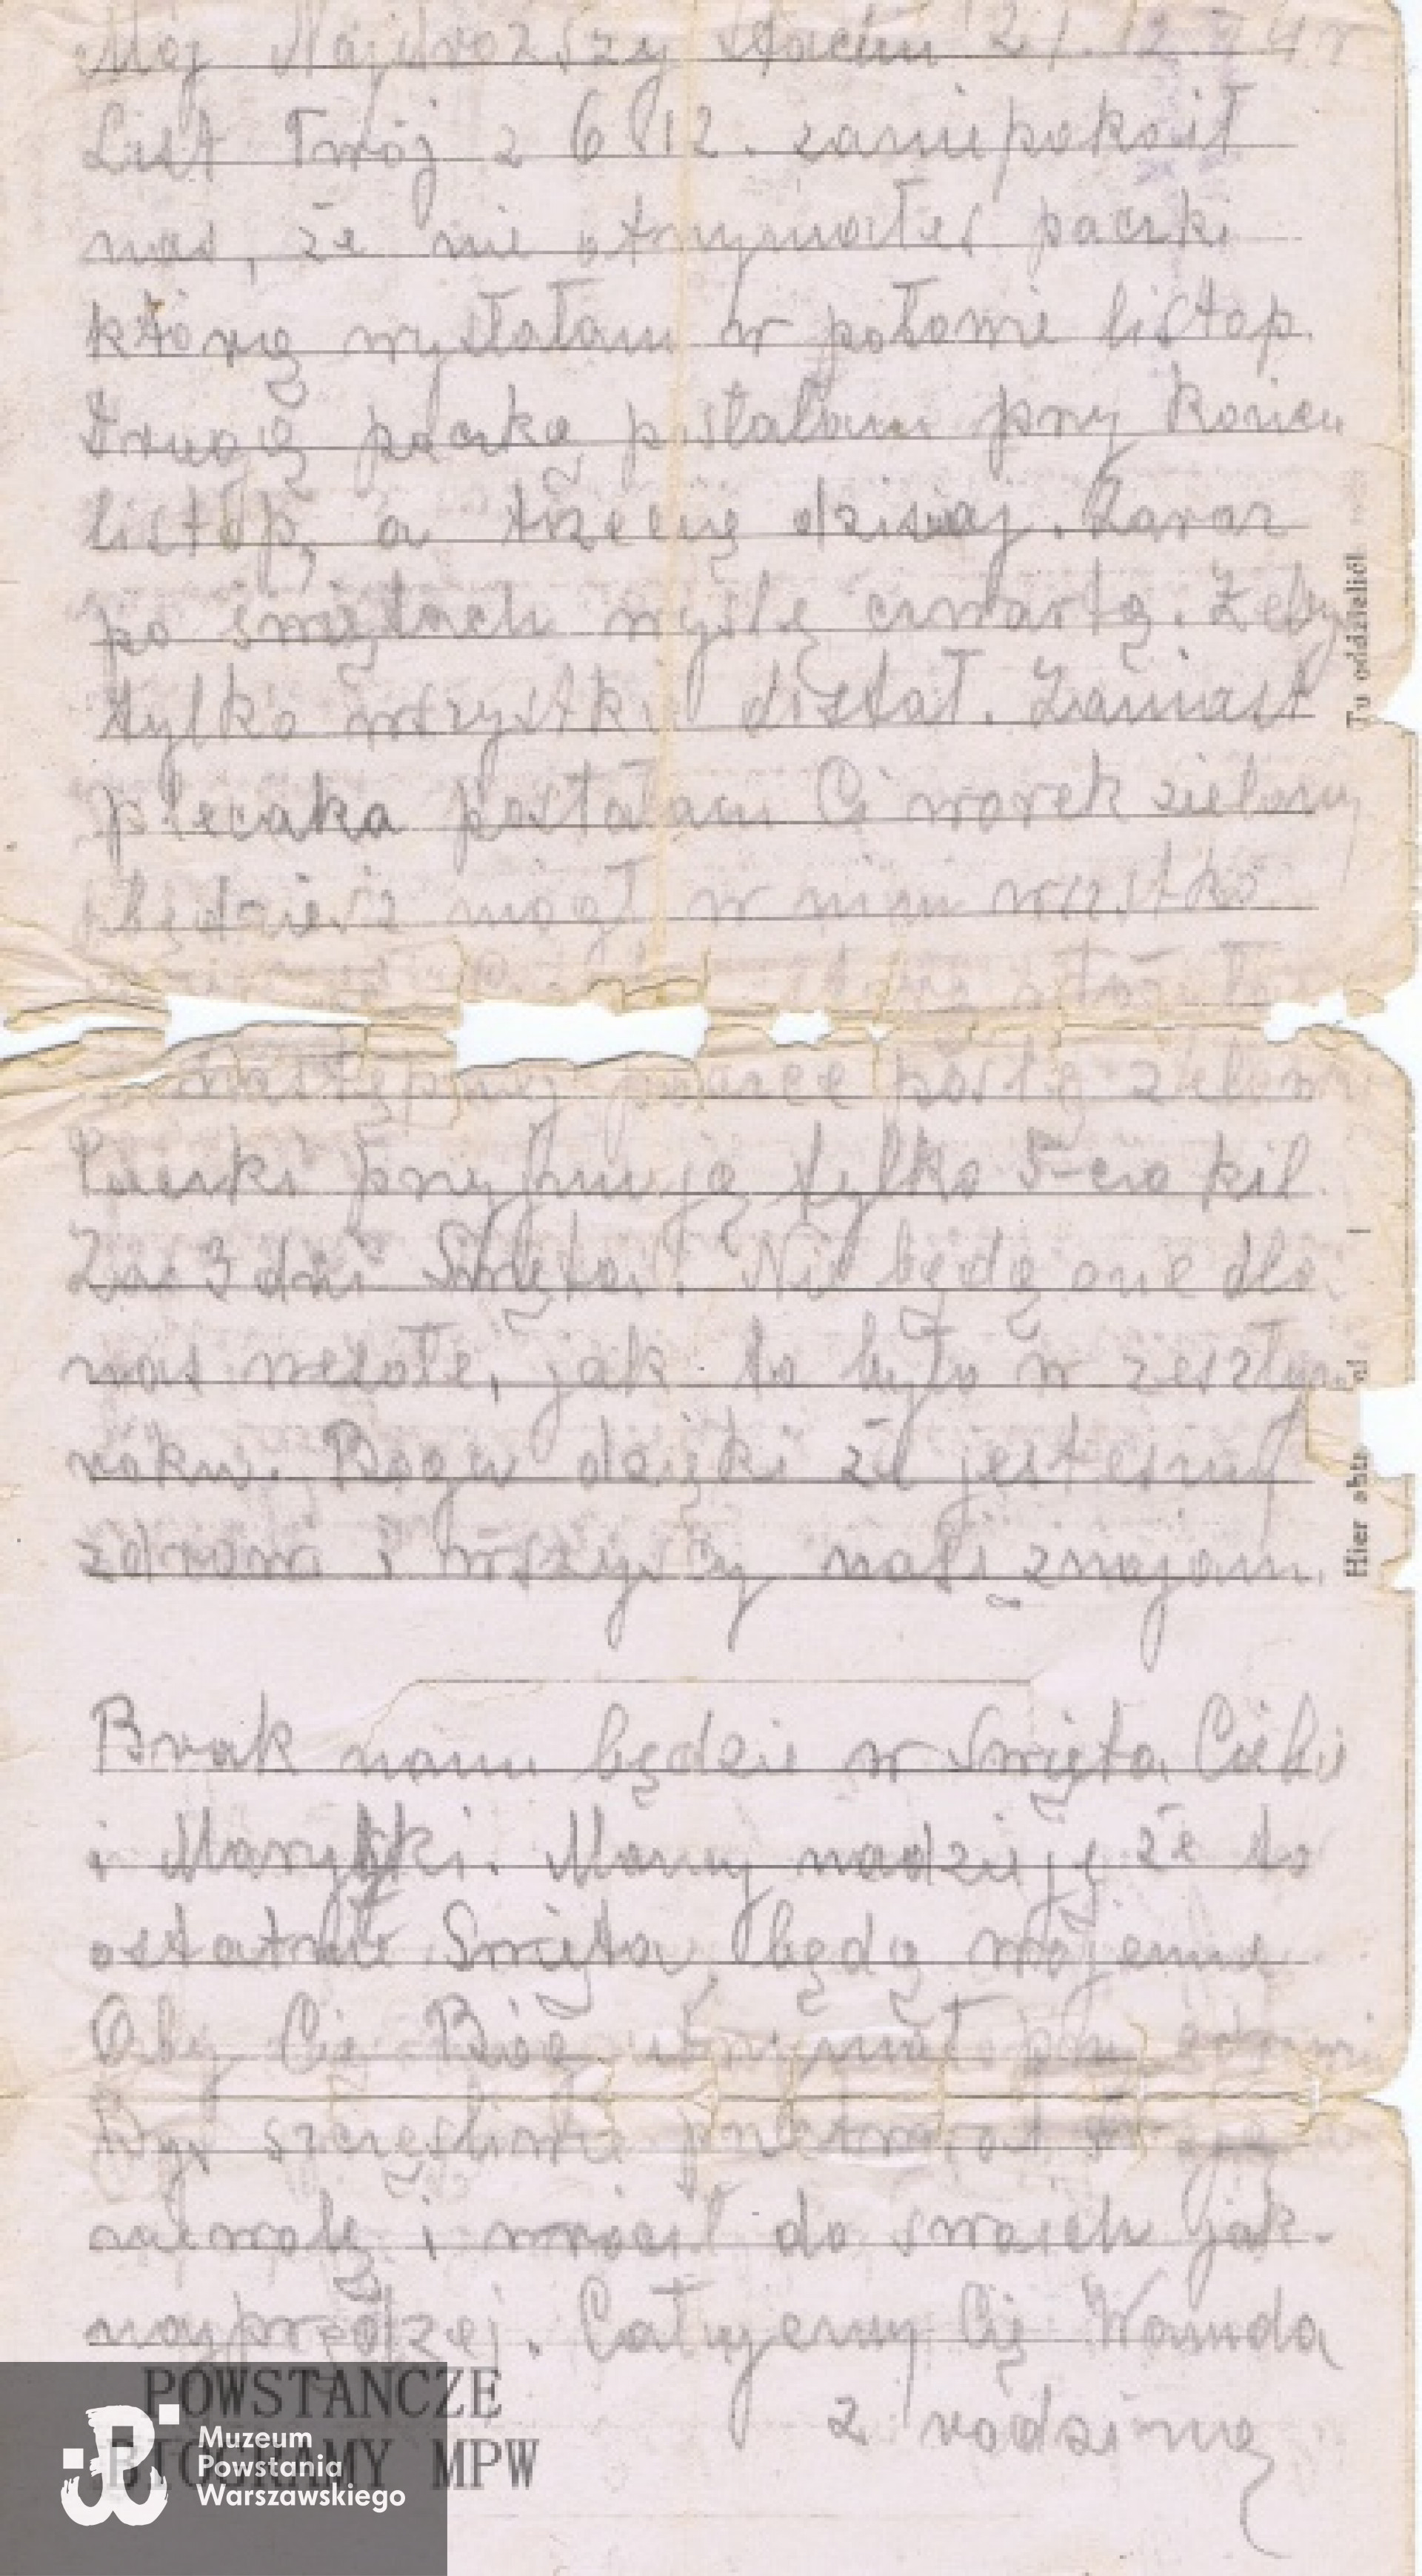 Mój Najdroższy Stachu 21.12.44r
List Twój z 6 12. zaniepokoił
nas, że nie otrzymałeś paczki
którą wysłałam w połowie listop.
drugą paczkę posłałam przy końcu
listop, a trzecią dzisiaj. Zaraz
po świętach wyślę czwartą. Żeby
tylko wszystki dostał. Zamiast
plecaka posłałam Ci worek zielony
będziesz mógł w nim wszstko
następnej paczce poślę zielone
Paczki przyjmują tylko 5-cio kil.
Za 3 dni Święta. Nie będą one dla
nas wesołe, jak to było w zeszłym
roku. Bogu dzięki że jesteśmy
zdrowi i wszyscy nasi znajom.
Brak nam będzie w Święta Ciebie
i Marylki. Mamy nadzieję że to
ostatnie Święta będą wojenne
Oby Cię Bóg utrzymał przy zdrowi
Byś szczęśliwie przetrwał
niewolę i wrócił do swoich jak-
najprędzej. Całujemy Cię Wanda
z rodziną
Tu oddzielić
Hier abtr
POWSTAŃCZE
BIOGRAMY MPW
Muzeum
Powstania
Warszawskiego